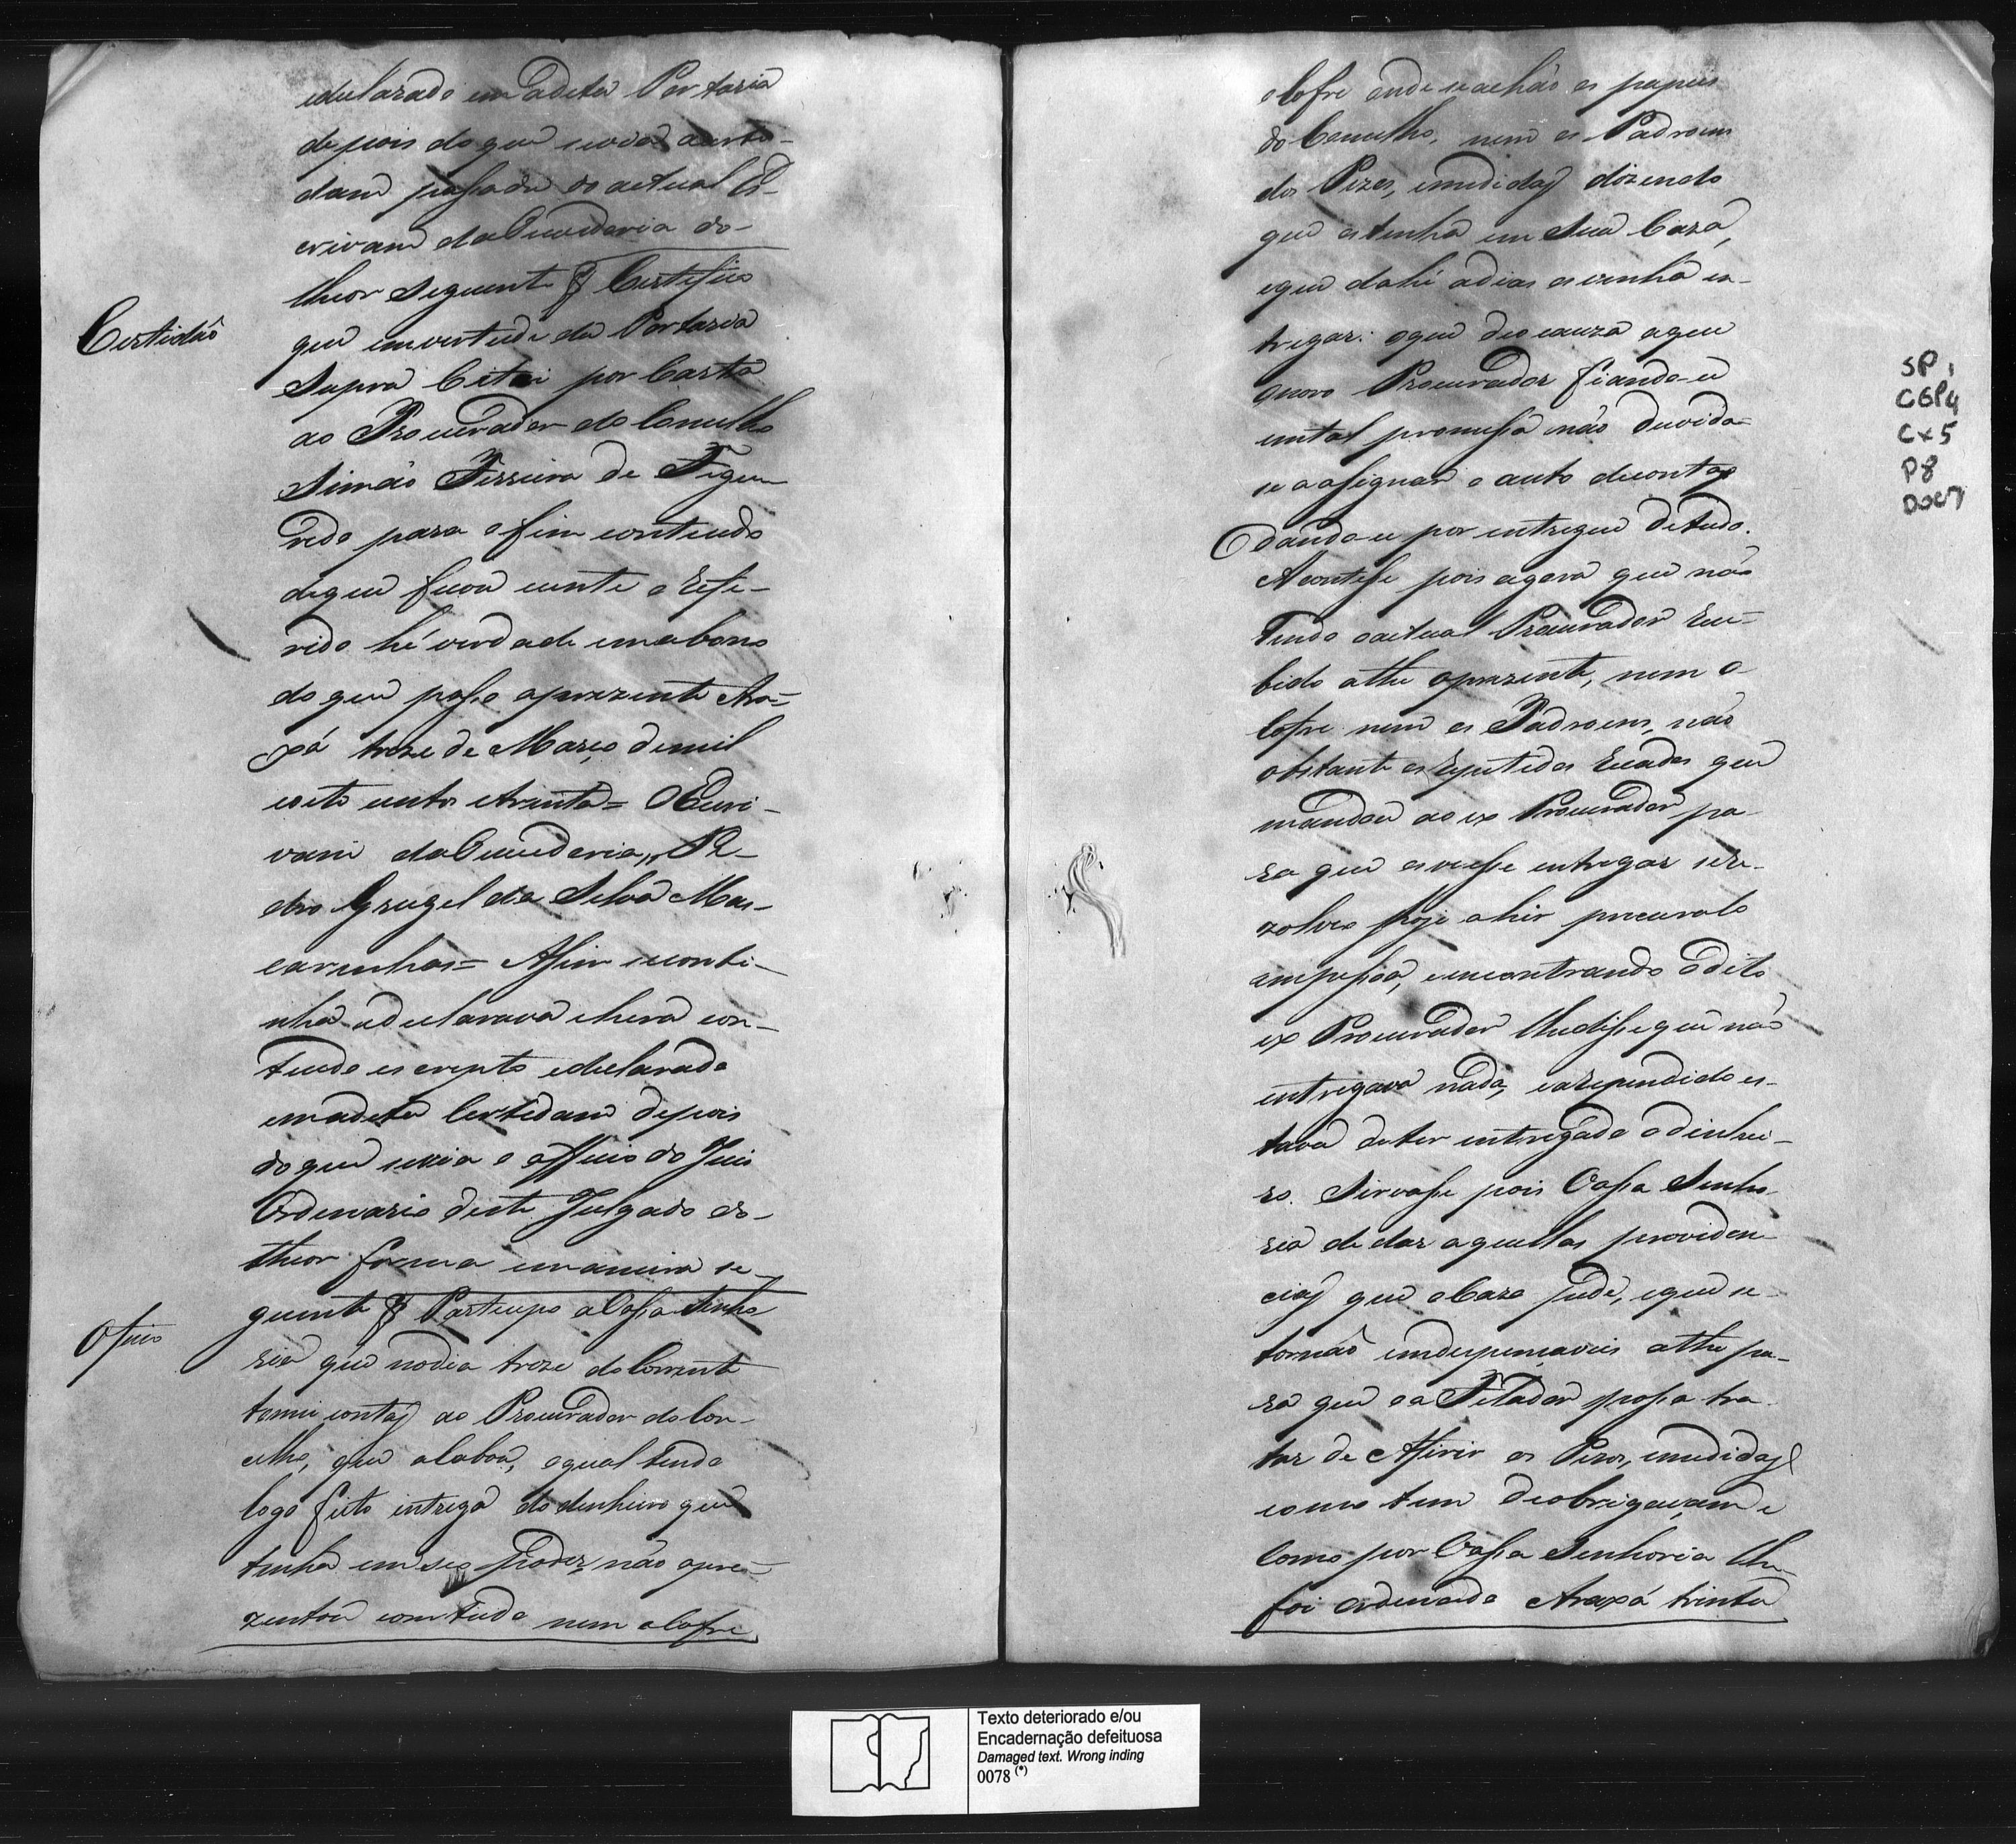 edeclarado em adita Portaria
depois do que se via a certi-
dam passada do actual Es-
crivam da Ouvedoria do-
theor seguinte Certefico
Certidão
que em vertude da Portaria
Supra Citei por Carta
ao Procurador do Concelho
Simão Ferreira de Figue-
redo para o fim contendo
de que ficou ciente o Refe-
rido hé verdade em abono
do que passo a prezente Ara-
xá treze de Março de mil
e oito centos e trinta = O Escri-
vam da Ouvedoria, Pe-
dro Grugel da Silva Mas-
carinhas = Assim se conti-
nha e declarava e hera con-
tiudo escripto edeclarado
em adita Certedam depois
do que se via o officio do Juis
Ordenario deste Julgado do-
theor forma e maneira se-
guinte Partecipo a Vossa Senho
Oficio
ria que no dia treze do Corrente
tomei contas ao Procurador do Con-
celho, que acabou, o qual tendo
logo feito entrega do dinheiro que
tinha em seo poder, não apre-
zentou com tudo nem o Cofre
o Cofre onde se achão os papeis
do Concelho, nem os Padroens
dos Pezos, e medidas dizendo
que os tinha em Sua Caza,
e que dahi a dias os vinha en-
tregar: o que deo cauza a que
o novo Procurador fiando-se
em tal promessa não duvida-
se a assignar o auto de contas
dando-se por entregue de tudo.
Acontesse pois agora que não
tendo o actual Procurador Rece-
bido athe o prezente, nem o
Cofre nem os Padroens, não
obstante os Repetidos Recados que
mandou ao ex Procurador pa-
ra que os viesse entregar se re-
zolveo hoje a hir procuralo
em pessoa, e encontrando o dito
ex Procurador lhe disse que não
entregava nada, e arependido es-
tava de ter entregado o dinhei-
ro. Sirvasse pois Vossa Senho-
ria de dar aquellas providen-
cias que o Cazo pede, e que se
tornão endespençaveis athe pa-
ra que o Afilador possa tra-
tar de Afirir os Pezos, e medidas
como tem de obrigaçam e
Como por Vossa Senhoria lhe
foi ordenado Araxá trinta
SP
CGP4
Cx5
P8
DOC7
Texto deteriorado e/ou
Encadernação defeituosa
Damaged text. Wrong inding
0078 (*)